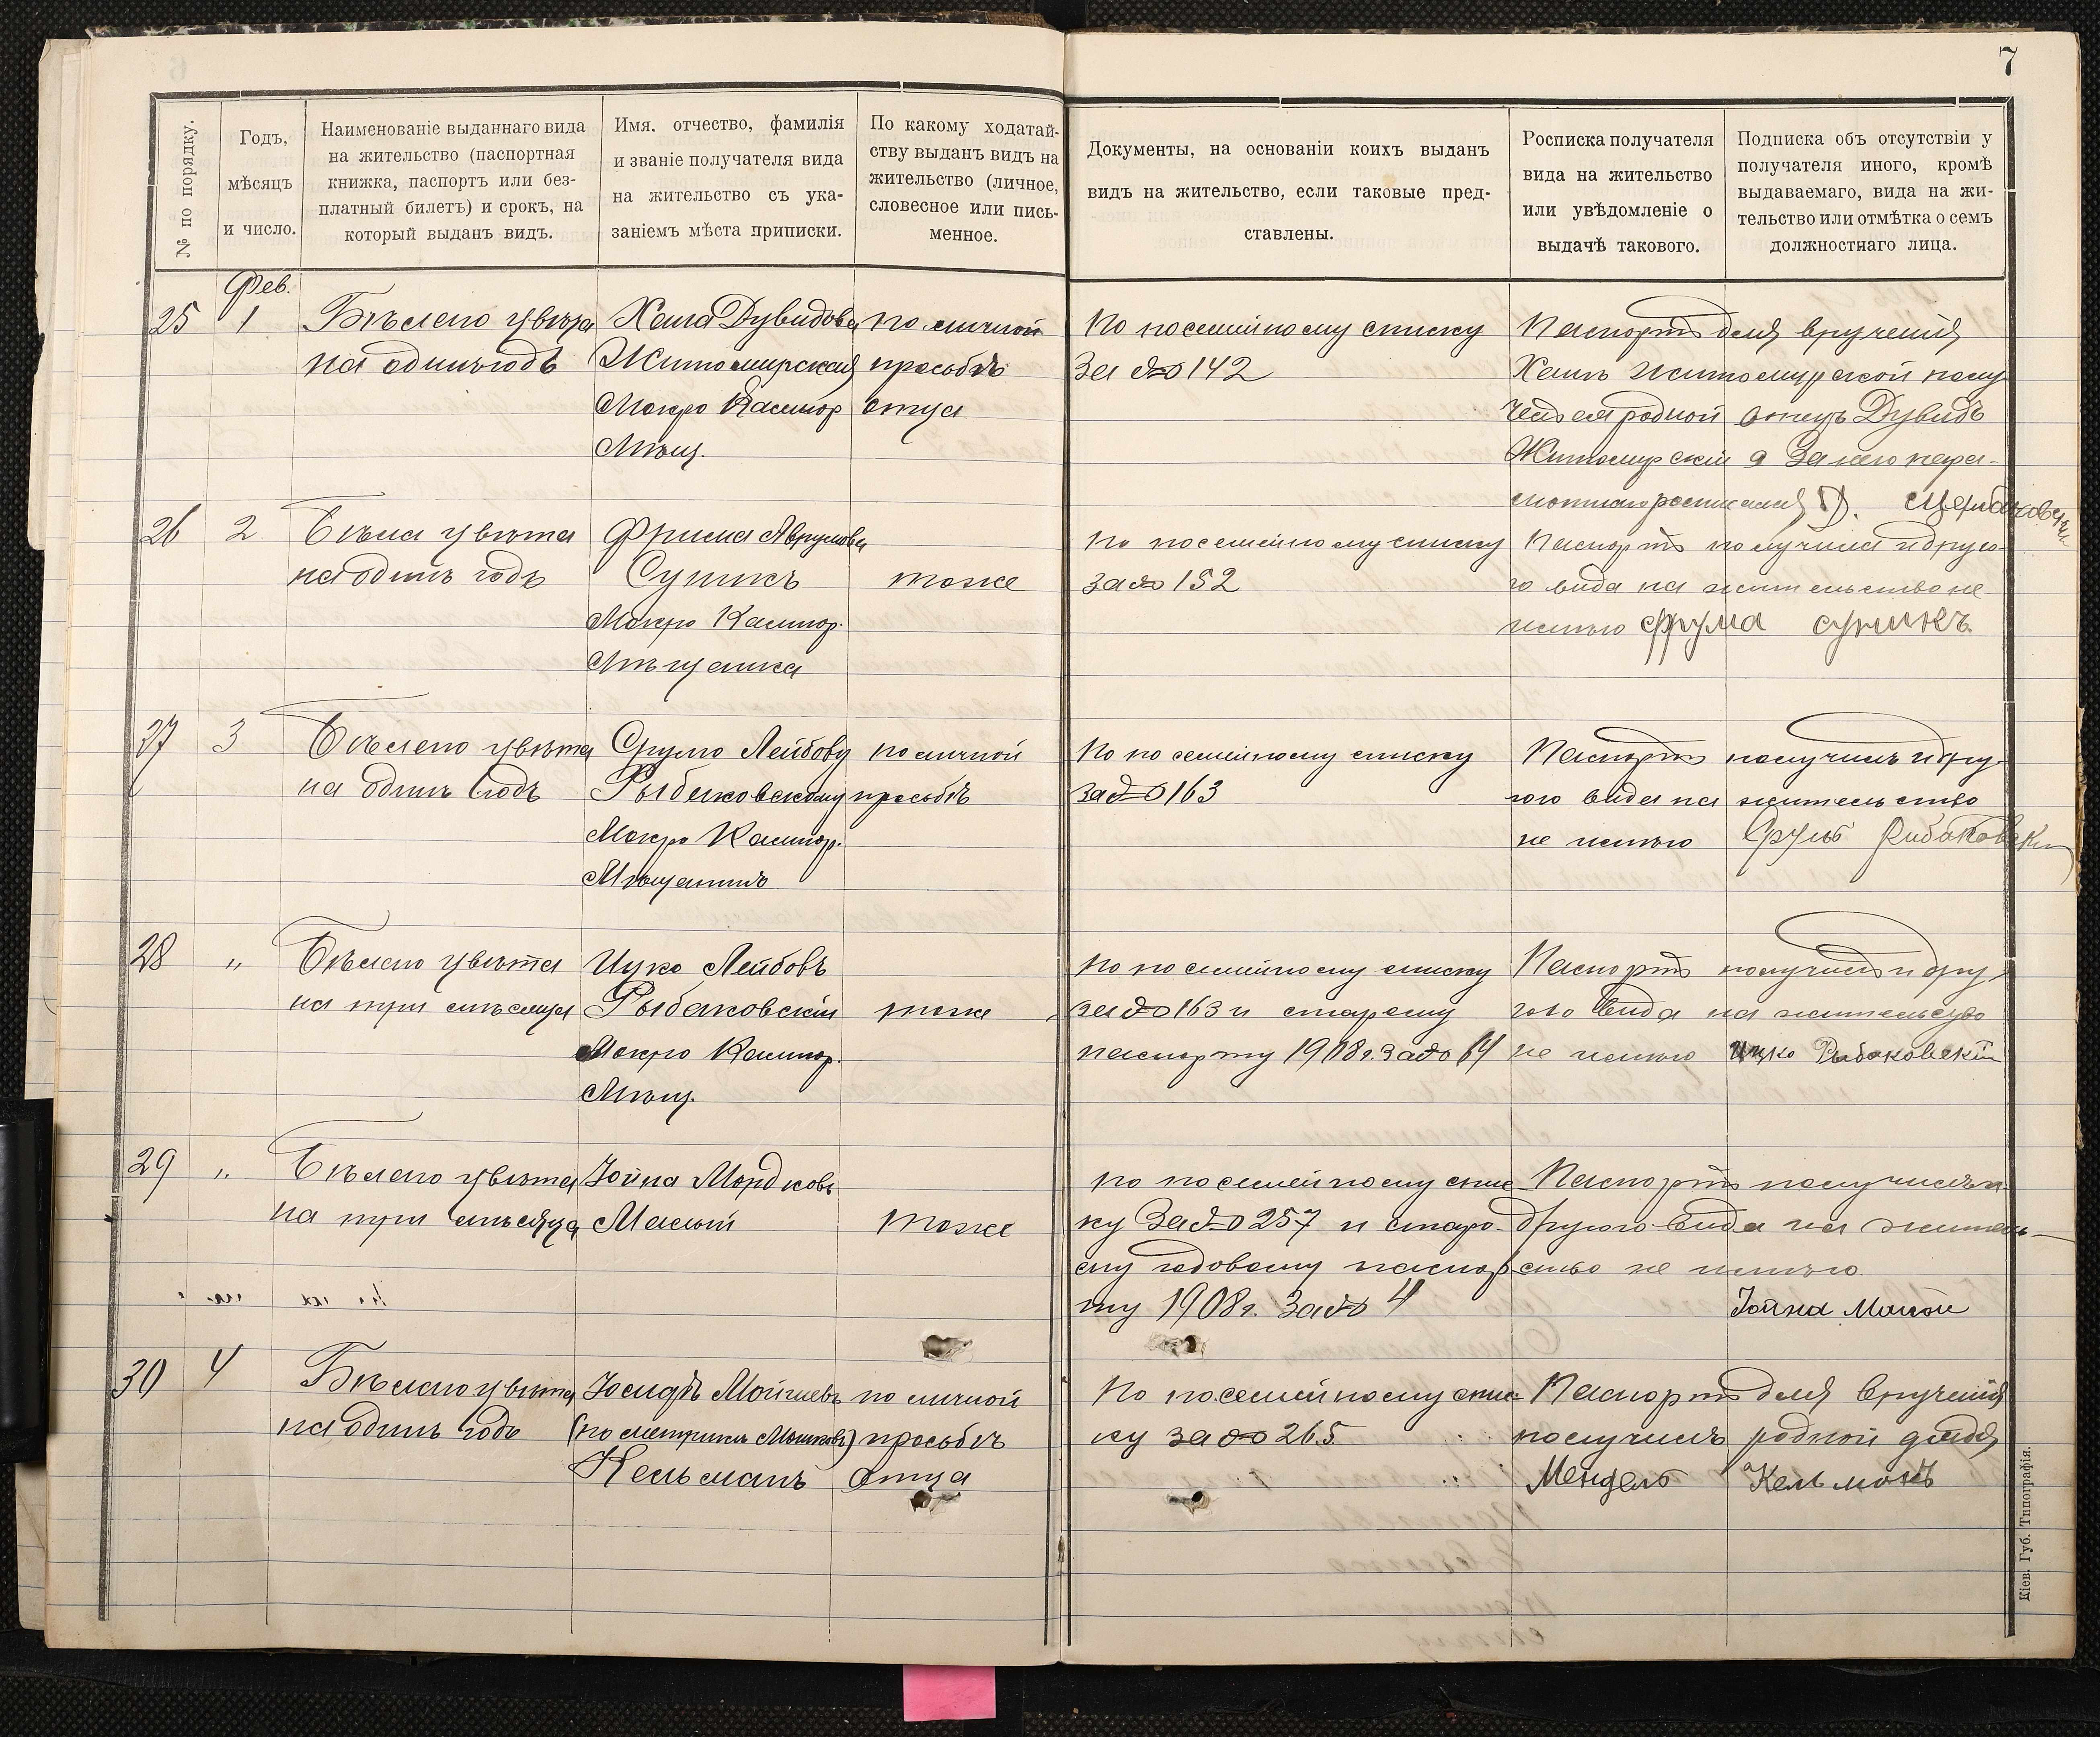 7
№ по порядку.
Годъ,
мѣсяцъ
и число.
Наименованіе выданнаго вида
на жительство (паспортная
книжка, паспортъ или без-
платный билетъ) и срокъ, на
который выданъ видъ.
Имя, отчество, фамилія
и званіе получателя вида
на жительство съ ука-
заніемъ мѣста приписки.
По какому ходатай-
ству выданъ видъ на
жительство (личное,
словесное или пись-
менное.
Документы, на основаніи коихъ выданъ
видъ на жительство, если таковые пред-
ставлены.
Росписка получателя
вида на жительство
или увѣдомленіе о
выдачѣ такового.
Подписка объ отсутствіи у
получателя иного, кромѣ
выдаваемаго, вида на жи-
тельство или отмѣтка о семъ
должностнаго лица.
Фев.
25
1
Бѣлаго цвѣта
на одинъ годъ
Хана Дувидова
Житомирская
Мокро Калигор
Мѣщ.
По личной
просьбѣ
отца
По посемейному списку
за № 142
Паспортъ для врученія
Ханѣ Житомирской полу-
челъ ея родной отецъ Дувидъ
Житомирскій а За него негра-
мотнаго росписался
26
2
Бѣлаго цвѣта
на одинъ годъ
Фрима Аврумова
Супикъ
Мокро Калигор.
Мѣщанка
тоже
По посемейному списку
за № 152
Паспортъ получила и друго-
го вида на жительство не
имѣю Фрума Супикъ
27
3
Бѣлаго цвѣта
на одинъ годъ
Срулю Лейбову
Рыбаковскому
Мокро Калигор.
Мѣщанинъ
по личной
просьбѣ
По посемейному списку
за № 163
Паспортъ получилъ и дру-
гого вида на жительство
не имѣю Сруль Рибаковски
28
"
Бѣлаго цвѣта
на три мѣсяца
Ицко Лейбовъ
Рыбаковскій
Мокро Калигор.
Мѣщ.
тоже
По посемейному списку
за № 163 и старому
паспорту 1908 г. за № 64
Паспортъ получилъ и дру-
гого вида на жительство
не имѣю Ицко Рыбаковскій
29
"
Бѣлаго цвѣта
на три мѣсяца
Іойна Мордковъ
Малый
тоже
По посемейному спис-
ку За № 257 и старо-
му годовому паспор-
ту 1908 г. За № 4
Паспортъ получилъ и
другого вида на житель-
ство не имѣю
Іойна Малои
30
4
Бѣлаго цвѣта
на одинъ годъ
Іосифъ Мойшевъ
(по метрикѣ Мошковъ)
Кельманъ
по личной
просьбѣ
отца
По посемейному спис-
ку за № 265
Паспортъ для врученія
получилъ родной дядя
Мендель Кельманъ
Кіев. Губ. Типографія.